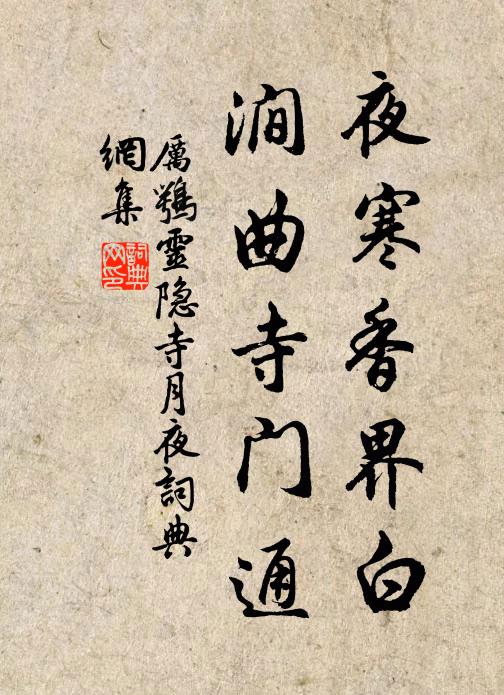 夜寒香界白
澗曲寺門通
厲鶚靈隐寺月夜詞典
網集
詞典
网印